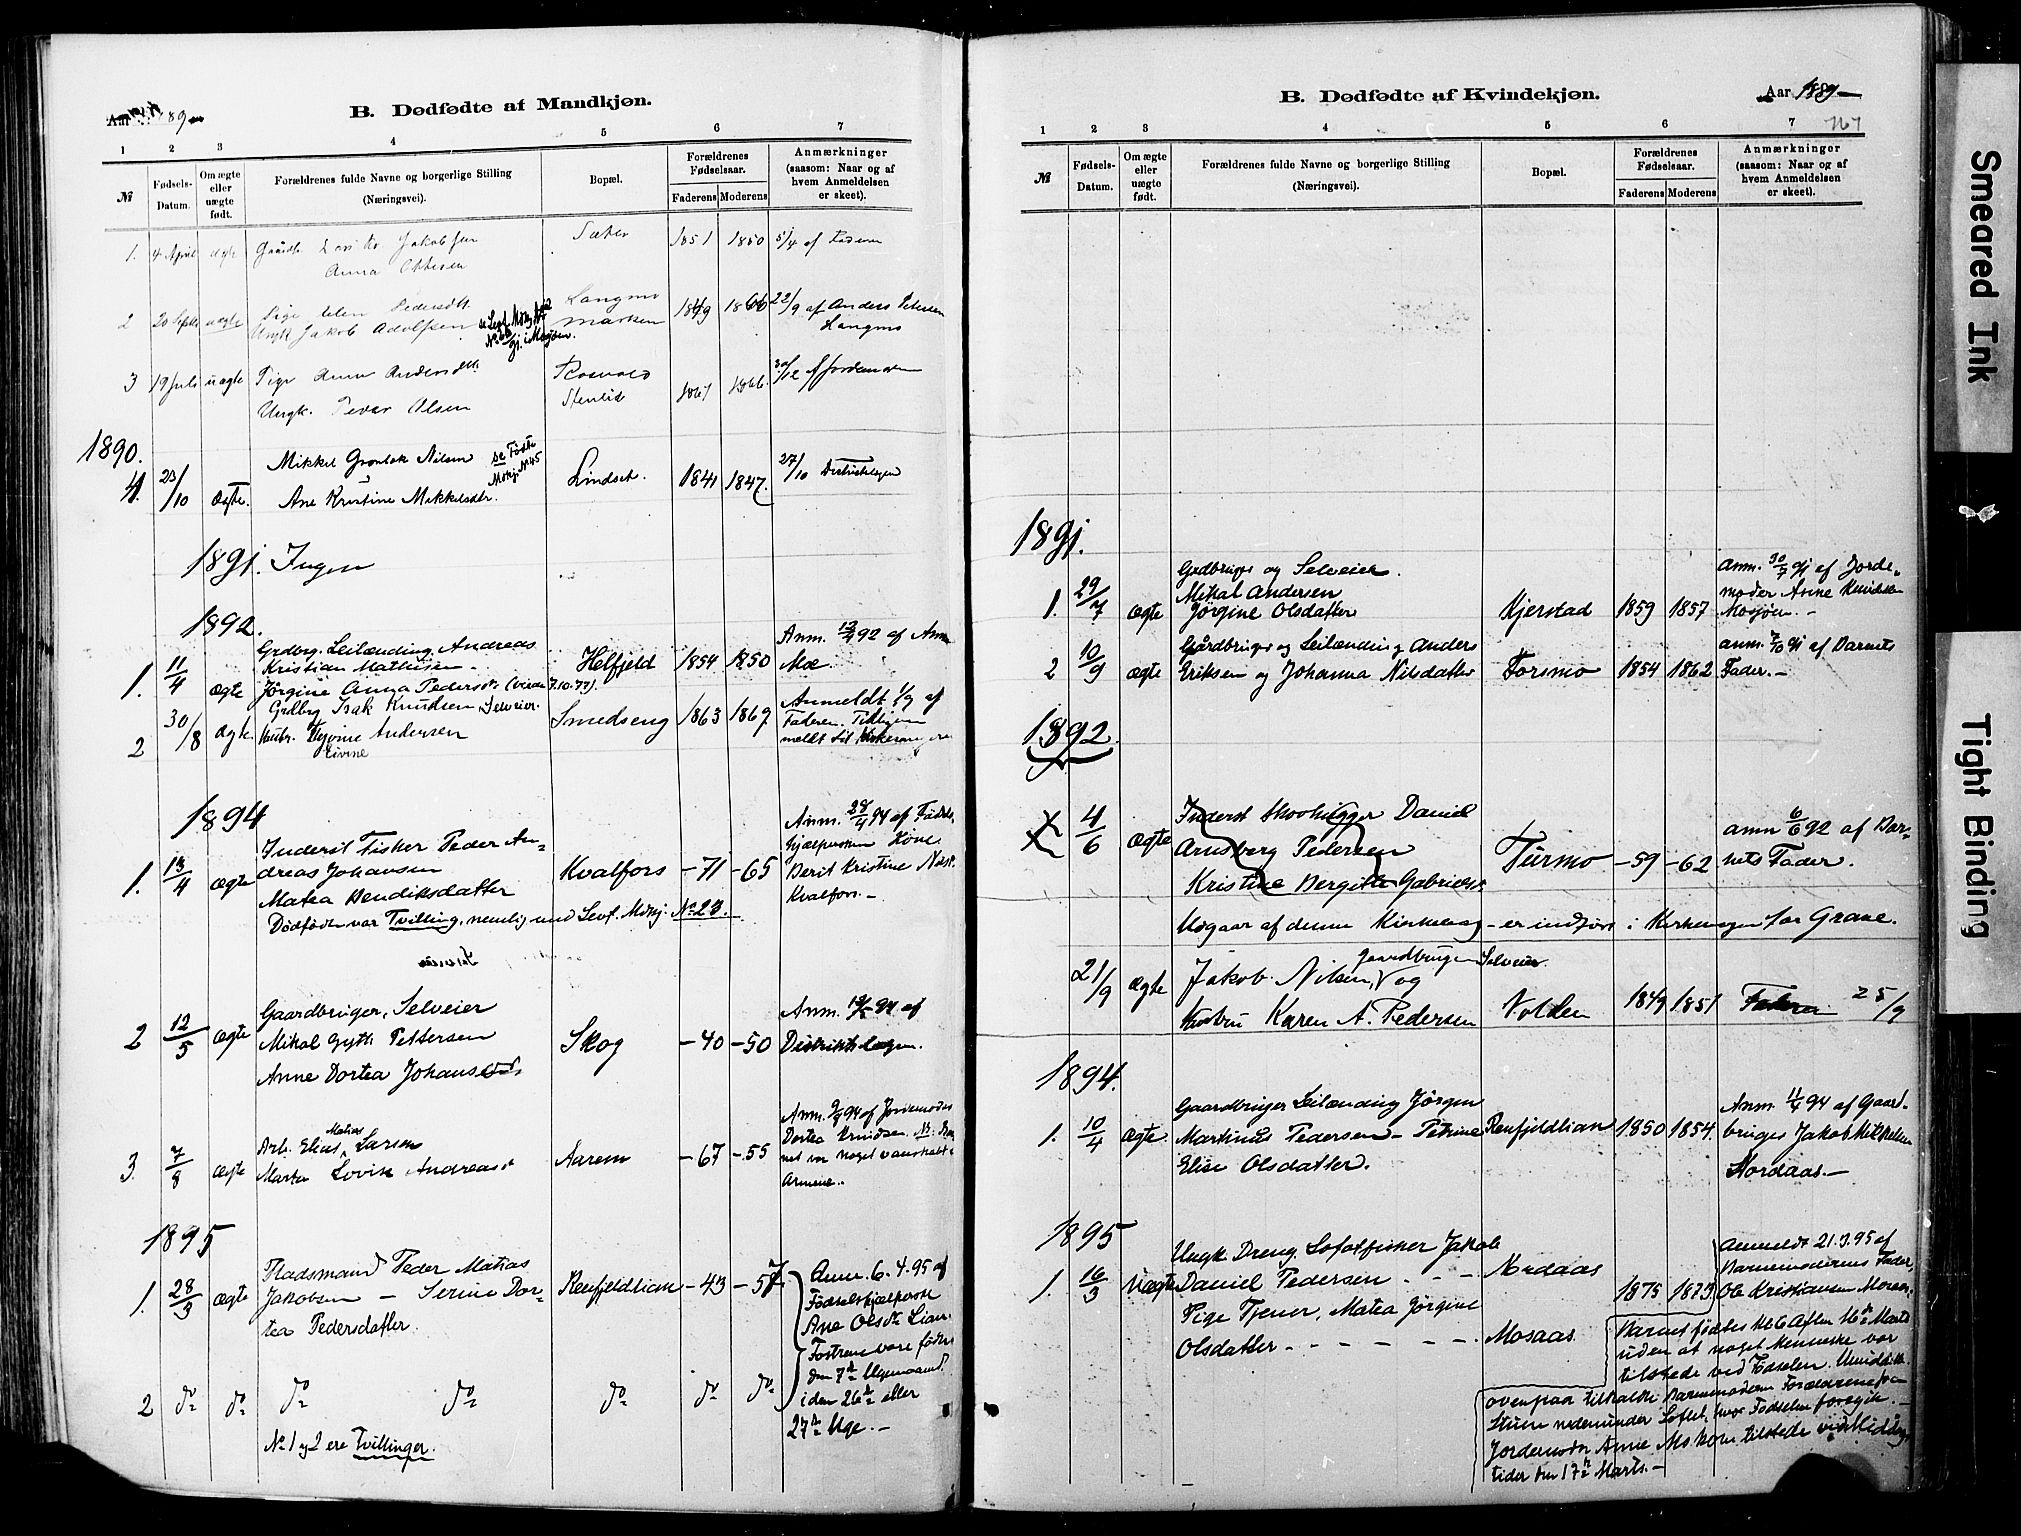 B. Dødfødte af Mandkjøn.
1 2 3 4 5 6 7
№
Fødsels-Datum.
Om ægte eller uægte født.
Forældrenes fulde Navne og borgerlige Stilling
(Næringsvei).
Bopæl.
Forældrenes Fødselsaar.
Faderens Moderens
Anmærkninger
(saasom: Naar og af
hvem Anmeldelsen
er skeet).
1. 4 April ægte Jakobsen 1851 1850 5/4 af Faderen
Anna Ottesen
2 20 Septbr uægte Pige Elen Pedersdtr. 1849 1866 22/9 af Anders Petersen
Ungk Jakob Adolfsen
3 19 Juli uægte Pige Anna Andersdtr. 1861 1866. 30/12 af Jordemoderen
Ungk. Peder Olsen Stenlid
1890.
Mikkel Grønbæk Nilsen se Fødte
4. 23/10 Ægte. Ane Kristine Mikkelsdtr. Mdkj № 45 Lindset. 1841 1847. 27/10 Distriktslægen
1891. Ingen
1892.
Grdbrg. Leilænding Andreas
Kristian Mathisen
1. 11/4 ægte Jørgine Anna Pedersdtr. Helfjeld 1854 1850 Anm. 13/4 92 af Anne Moe
Grdbrg Isak Knudsen Selveier.
2 30/8 ægte Hustr. Andersen Smedseng 1863 1867 Anmeldt 1/9 af
Eivine Faderen.
1894
Inderst Fisker Peder An-
dreas Johansen
1. 13/4 ægte Matea Hendiksdatter Kvalfors -71 -65 Anm. 28/4 94 af Fødsels-
hjælpersken Kone
Berit Kristine
Kvalfors.-
Dødfødte var Tvilling, nemlig med Levf. Mdkj. № 23.
Gaardbruger, Selveier
2 12/5 ægte Mikal Gyth Pettersen Skog -40 -50 Anm. 19/5 94 af
Anne Dortea Johansdtr. Distriktslægen.
3. 7/8 ægte Arb. Elias Matias Larsen Aarem -67 -55 Anm. 9/8 94 af Jordemoder
Marta Lovise Andreasdtr Dortea Knudsen.
1895
Pladsmand Peder Matias
1. 28/3 ægte Jakobsen - Serine Dor-
tea Pedersdatter. Renfjeldlian -43 -57 Anm. 6.4.95 af
Fødselshjælperske
Ane Olsdtr Lian.
Fostrene vare fødte
den 7de Maaned
i den 26de eller
27de Uge.-
2 do do do do do do do
№ 1 og 2 ere Tvillinger.
B. Dødfødte af Kvindekjøn.
Aar 1889
1 2 3 4 5 6 7
№
Fødsels-Datum.
Om ægte eller uægte født.
Forældrenes fulde Navne og borgerlige Stilling
(Næringsvei).
Bopæl.
Forældrenes Fødselsaar.
Faderens Moderens
Anmærkninger
(saasom: Naar og af
hvem Anmeldelsen
er skeet).
1891.
Grdbruger og Selveier.
Mikal Andersen
1. 29/7 ægte Jørgine Olsdatter Kjerstad 1859 1857 anm. 30/7 91 af Jorde-
moder Anne Knudsen
Mosjøen.-
Gårdbruger og Leilænding Anders
2 10/9 ægte Eriksen og Johanna Nilsdatter Forsmo 1854 1862 anm. 7/10 91 af Barnets
Fader.-
1892.
4/6 Ægte Inderst Daniel
Arnsberg Pedersen
Kristine Bergitte Gabrielsd Turmo -59 -62 anm 6/6 92 af Bar-
nets Fader.
Udgaar af denne Kirkebog - er indført i Kirkebogen for Grane.
Gaardbruger Selveier.
21/9 Ægte Jakob Nilsen, og
Hustru Karen A. Pedersen Nolden 1849 1851 Faderen 25/9
1894.
Gaardbruger Leilænding Jørgen
1. 10/4 Ægte. Martinus Pedersen - Petrine
Elise Olsdatter. Renfjeldlian 1850 1854. Anm. 11/4 94 af Gaard-
bruger Jakob Mikkelsen
Nordaas.-
1895
Ungk Dreng. Lofotfisker Jakob
1. 16/3 Uægte Daniel Pedersen - - - Nordaas 1875 1873 Anmeldt 21.3.95 af
Barnemoderens Fader,
Ole Kristiansen Mosaas.
Pige Tjener, Matea Jørgine
Olsdatter - - - - - Mosaas.
Barnet fødtes Kl. 6 Aften 16de Marts
uden at noget Menneske var
tilstede ved Fødselen. Umiddelb.
ovenpaa tilkaldte Barnemoderen Forældrene fra
Stuen nedenunder Loftet, hvor Fødselen foregik.-
Jordemoder Anne Moe kom tilstede ved Middags-
tider den 17de Marts.-
Smeared Ink
Tight Binding